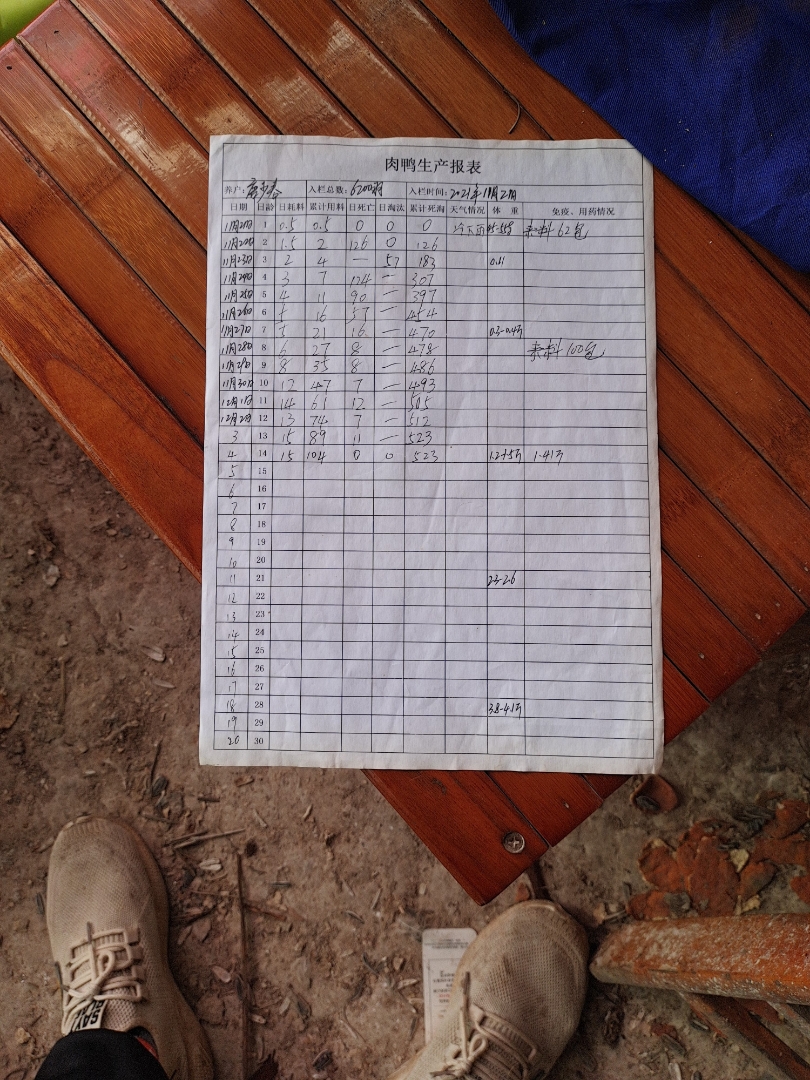 肉鸭生产报表
养户: 入栏总数: 6200羽 入栏时间: 2021年11月21日
日期 日龄 日耗料 累计用料 日死亡 日淘汰 累计死淘 天气情况 体 重 免疫、用药情况
11月21日 1 0.5 0.5 0 0 0 来料62包
11月22日 2 1.5 2 126 0 126
11月23日 3 2 4 — 57 183 0.11
11月24日 4 3 7 124 — 307
11月25日 5 4 11 90 — 397
11月26日 6 5 16 57 — 454
11月27日 7 5 21 16 — 470
11月28日 8 6 27 8 — 478 来料100包
11月29日 9 8 35 8 — 486
11月30日 10 12 47 7 — 493
12月1日 11 14 61 12 — 505
12月2日 12 13 74 7 — 512
3 13 15 89 11 — 523
4 14 15 104 0 0 523 1.41斤
5 15
6 16
7 17
8 18
9 19
10 20
11 21 2.3-2.6
12 22
13 23
14 24
15 25
16 26
17 27
18 28 3.8-4.1斤
19 29
20 30